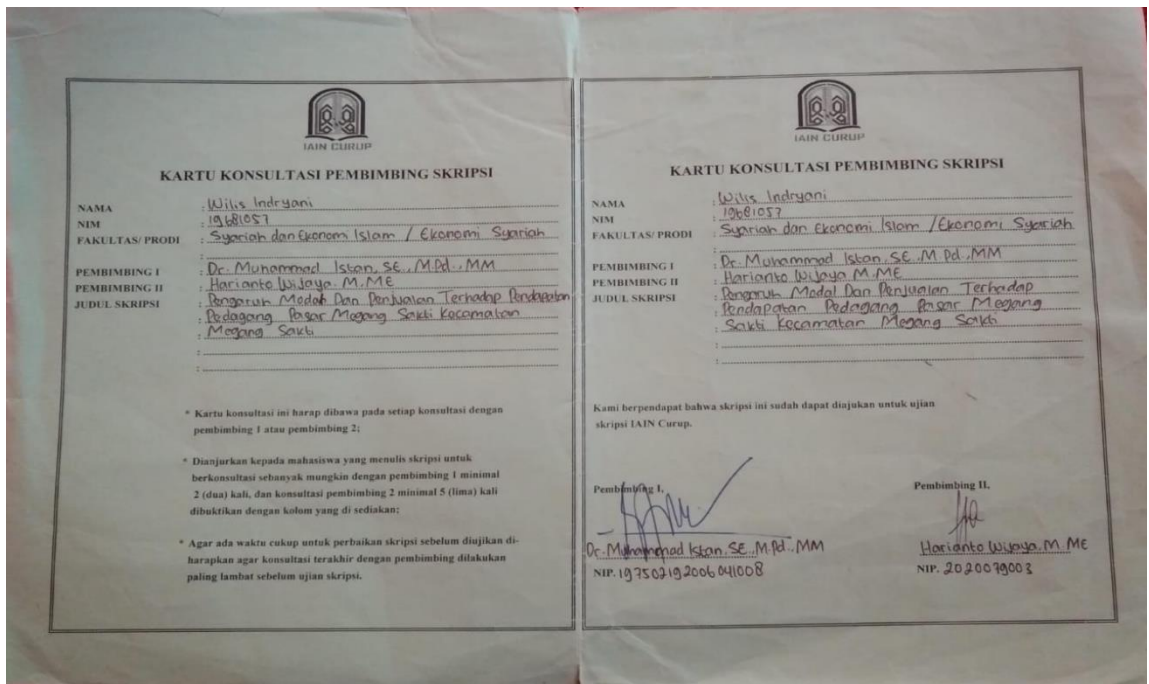 IAIN CURUP
KARTU KONSULTASI PEMBIMBING SKRIPSI
NAMA : Wilis Indryani
NIM : 19681057
FAKULTAS/ PRODI : Syariah dan Ekonomi Islam / Ekonomi Syariah
:
PEMBIMBING I : Dr. Muhammad Istan, SE., M.Pd., MM
PEMBIMBING II : Harianto Wijaya. M.ME
JUDUL SKRIPSI : Pengaruh Modal Dan Penjualan Terhadap Pendapatan
: Pedagang Pasar Megang Sakti Kecamatan
: Megang Sakti
:
:
* Kartu konsultasi ini harap dibawa pada setiap konsultasi dengan
pembimbing 1 atau pembimbing 2;
* Dianjurkan kepada mahasiswa yang menulis skripsi untuk
berkonsultasi sebanyak mungkin dengan pembimbing 1 minimal
2 (dua) kali, dan konsultasi pembimbing 2 minimal 5 (lima) kali
dibuktikan dengan kolom yang di sediakan;
* Agar ada waktu cukup untuk perbaikan skripsi sebelum diujikan di-
harapkan agar konsultasi terakhir dengan pembimbing dilakukan
paling lambat sebelum ujian skripsi.
IAIN CURUP
KARTU KONSULTASI PEMBIMBING SKRIPSI
NAMA : Wilis Indryani
NIM : 19681057
FAKULTAS/ PRODI : Syariah dan Ekonomi Islam / Ekonomi Syariah
:
PEMBIMBING I : Dr. Muhammad Istan, SE., M.Pd., MM
PEMBIMBING II : Harianto Wijaya M.ME
JUDUL SKRIPSI : Pengaruh Modal Dan Penjualan Terhadap
: Pendapatan Pedagang Pasar Megang
: Sakti Kecamatan Megang Sakti
:
:
Kami berpendapat bahwa skripsi ini sudah dapat diajukan untuk ujian
skripsi IAIN Curup.
Pembimbing I,
Dr. Muhammad Istan, SE., M.Pd., MM
NIP. 197502192006041008
Pembimbing II,
Harianto Wijaya, M ME
NIP. 2020079003